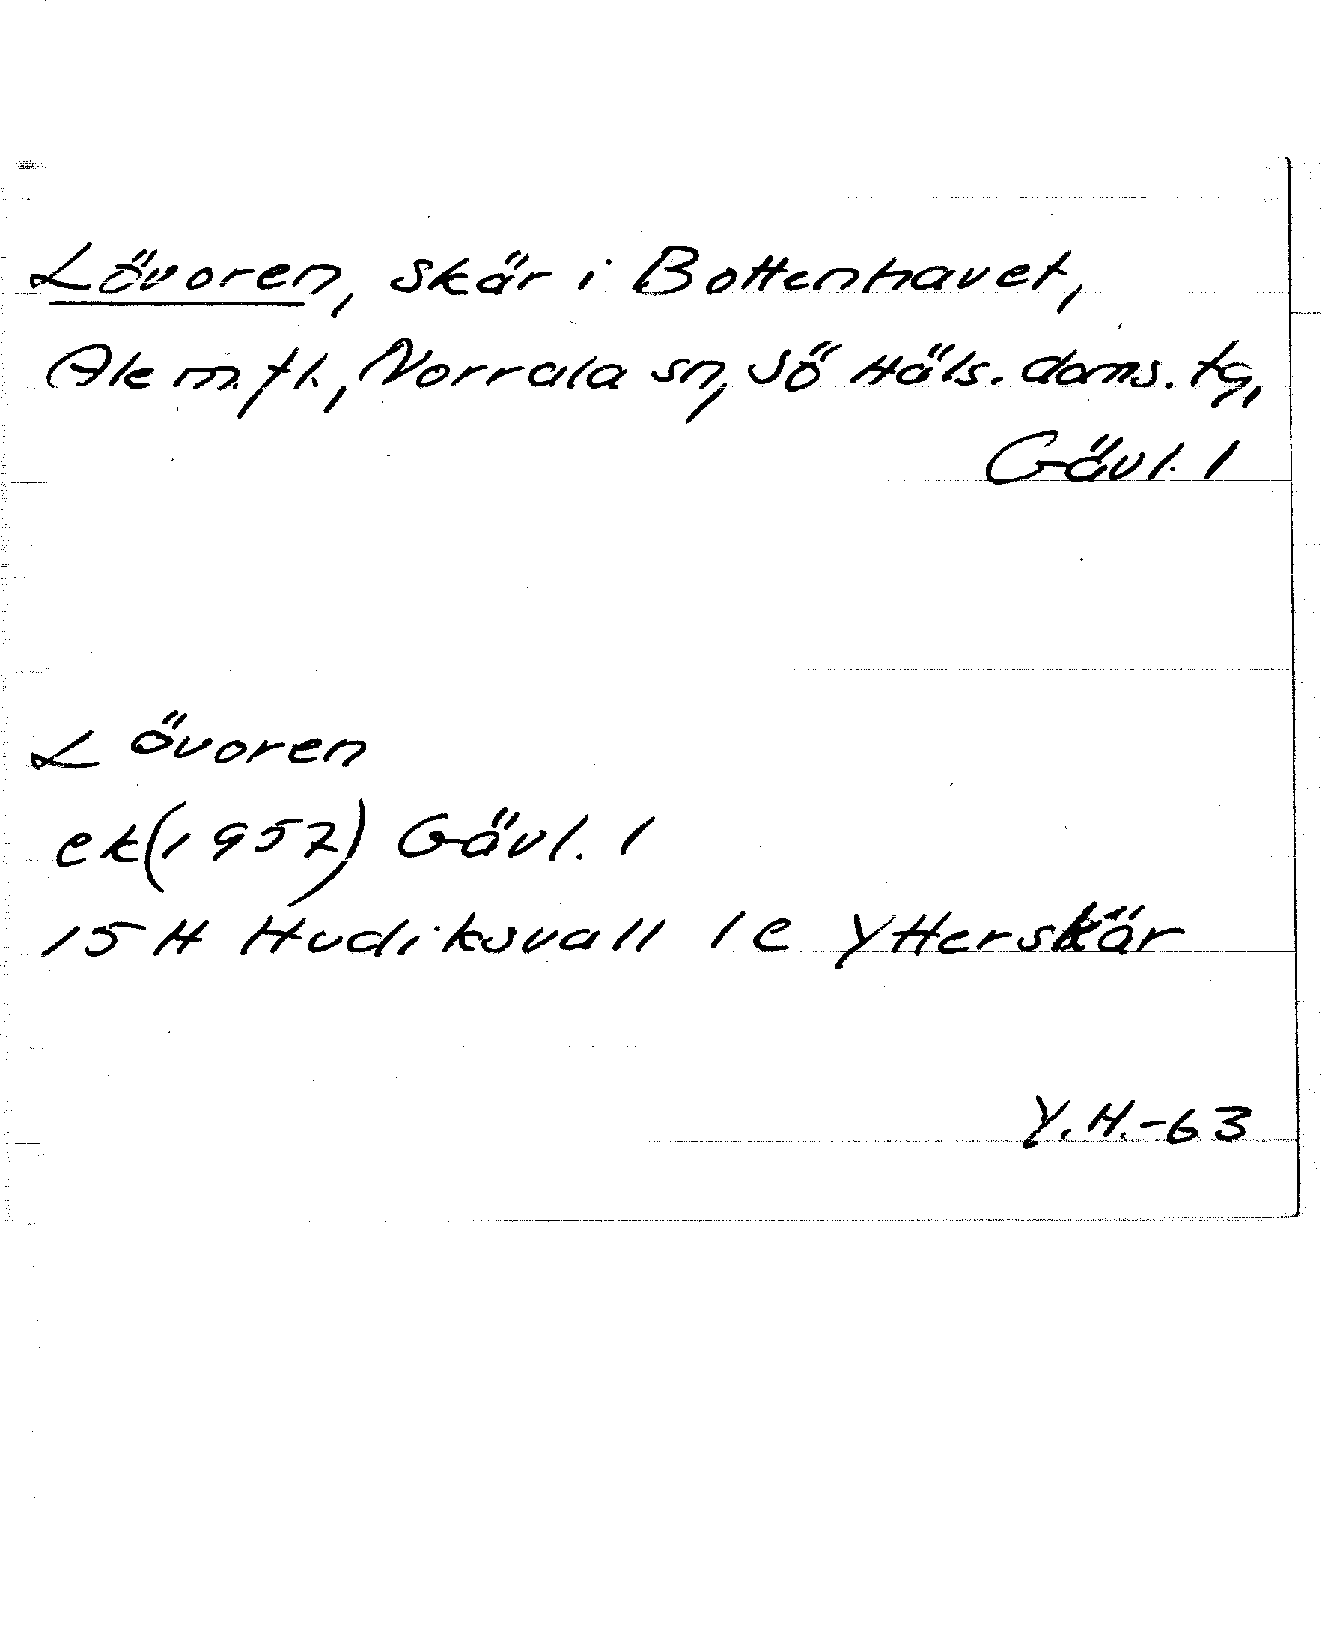 Lövoren, skär i Bottenhavet,
Ale m.fl., Norrala sn, Sö Häls. doms. tg,
Gävl. l
Lövoren
ek(1957) Gävl. l
15 H Hudiksvall 1 e Ytterskär
Y.H.-63